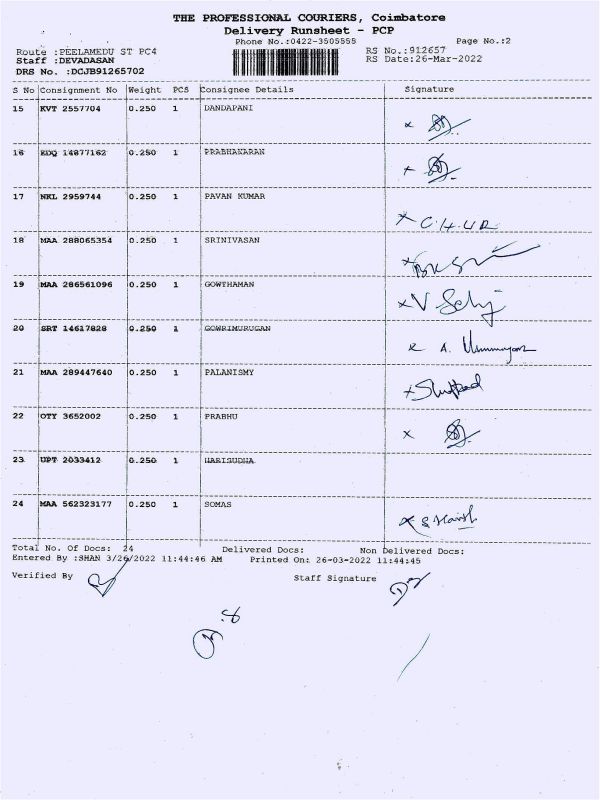 THE PROFESSIONAL COURIERS, Coimbatore
Delivery Runsheet - PCP
Phone No.:0422-3505555 Page No.:2
Route :PEELAMEDU ST PC4 RS No.:912657
Staff :DEVADASAN RS Date:26-Mar-2022
DRS No. :DCJB91265702
S No Consignment No Weight PCS Consignee Details Signature
15 KVT 2557704 0.250 1 DANDAPANI
16 EDQ 14877162 0.250 1 PRABHAKARAN
17 NKL 2959744 0.250 1 PAVAN KUMAR
18 MAA 288065354 0.250 1 SRINIVASAN
19 MAA 286561096 0.250 1 GOWTHAMAN
20 SRT 14617828 0.250 1 GOWRIMURUGAN
21 MAA 289447640 0.250 1 PALANISMY
22 OTY 3652002 0.250 1 PRABHU
23 UPT 2033412 0.250 1 HARISUDHA
24 MAA 562323177 0.250 1 SOMAS
Total No. Of Docs: 24 Delivered Docs: Non Delivered Docs:
Entered By :SHAN 3/26/2022 11:44:46 AM Printed On: 26-03-2022 11:44:45
Verified By Staff Signature